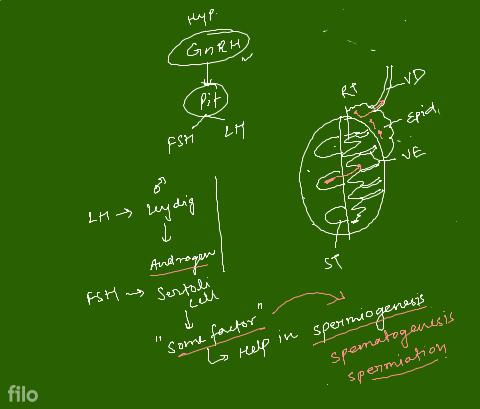 Hyp.
GnRH
Pit
FSH LH
RT
VD
Epid,
VE
ST
LH → Leydig
Androgen
FSH → Sertoli
cell
"Some factor"
→ Help in spermiogenesis
spematogenesis
spermiation
filo